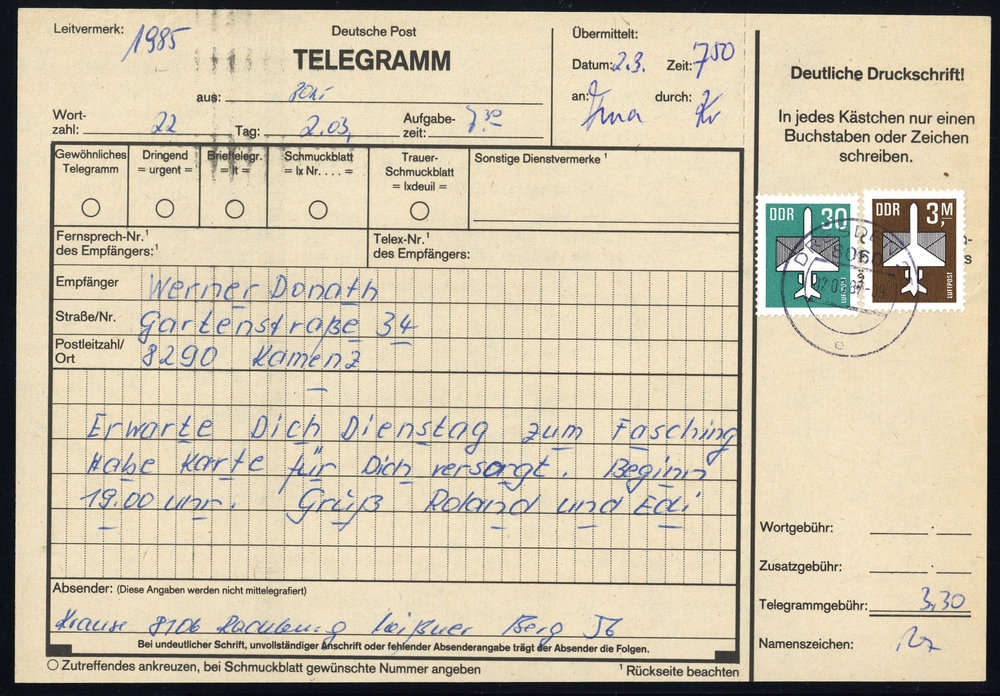 Leitvermerk: 1985
Deutsche Post
TELEGRAMM
aus:
Wort-
zahl: 22 Tag: 2.03. Aufgabe-
zeit: 7.30
Übermittelt:
Datum: 2.3. Zeit: 750
an: durch:
Irna Kr
Gewöhnliches
Telegramm
Dringend
= urgent =
Brieftelegr.
= lt =
Schmuckblatt
= lx Nr. . . . =
Trauer-
Schmuckblatt
= lxdeuil =
Sonstige Dienstvermerke ¹
Fernsprech-Nr.¹
des Empfängers:¹
Telex-Nr.¹
des Empfängers:
Empfänger Werner Donath
Straße/Nr. Gartenstraße 34
Postleitzahl/
Ort 8290 Kamenz
Erwarte Dich Dienstag zum Fasching
Habe Karte für Dich versorgt. Beginn
19.00 uhr. Gruß Roland und Edi
Absender: (Diese Angaben werden nicht mittelegrafiert)
Krause 8106 Radeburg Meißner Berg 56
Bei undeutlicher Schrift, unvollständiger Anschrift oder fehlender Absenderangabe trägt der Absender die Folgen.
Zutreffendes ankreuzen, bei Schmuckblatt gewünschte Nummer angeben
¹ Rückseite beachten
Deutliche Druckschrift!
In jedes Kästchen nur einen
Buchstaben oder Zeichen
schreiben.
DDR 30
LUFTPOST
DDR 3,M
LUFTPOST
DRESDEN
8060
e
Wortgebühr:
Zusatzgebühr:
Telegrammgebühr: 3,30
Namenszeichen: